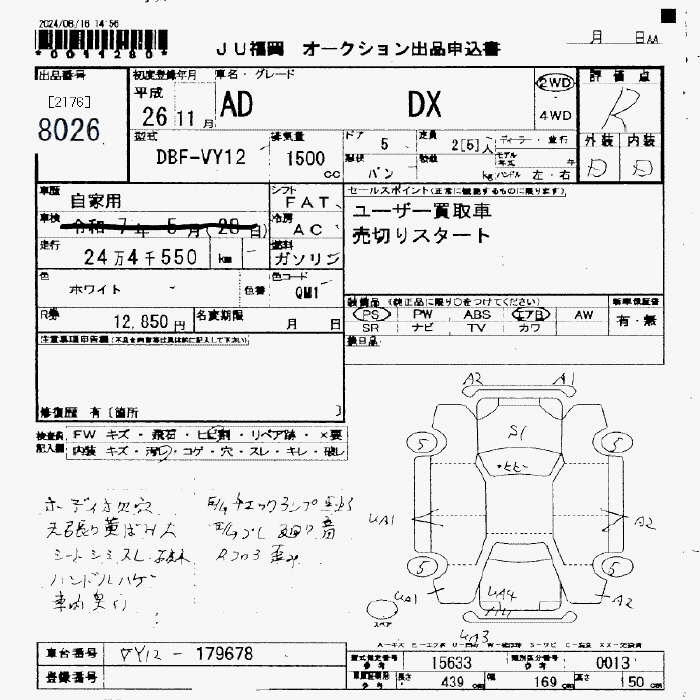 2024/08/16 14:56
*0011280*
JU福岡 オークション出品申込書
月 日AA
出品番号
[2176]
8026
初度登録年月
平成
26 11月
車名・グレード
AD DX
2WD
4WD
評価点
R
外装 内装
D D
型式
DBF-VY12
排気量
1500
cc
ドア
5
定員
2[5]人
ディーラー・並行
モデル年式 年
形状
バン
積載
kg
ハンドル 左・右
車歴
自家用
シフト
FAT
車検
令和 7年 5月(28日)
冷房
AC
走行
24万4千550 km
燃料
ガソリン
セールスポイント(正常に機能するものに限ります)
ユーザー買取車
売切りスタート
色
ホワイト
色番
色コード
QM1
R券
12,850円
名変期限
月 日
装備品 (純正品に限り○をつけてください)
PS PW ABS エアB AW
SR ナビ TV カワ
新車保証書
有・無
後日品
注意事項申告欄(不具合箇所等は具体的に記入して下さい)
修復歴 有〔箇所 〕
検査員記入欄
FW キズ・飛石・ヒビ割・リペア跡・×要
内装 キズ・汚れ・コゲ・穴・スレ・キレ・破レ
ボーディオ欠穴
天張り黄ばみ大
ハンドルハゲ
A2 A1
S1
5 5
ヒビ
UA1 A2
5 5
UA1 UA4 A2
UA3
スペア
車台番号
VY12 - 179678
登録番号
型式指定番号
参考
15633
類別区分番号
参考
0013
車庫証明用
参考
長さ
439cm
幅
169cm
高さ
150cm